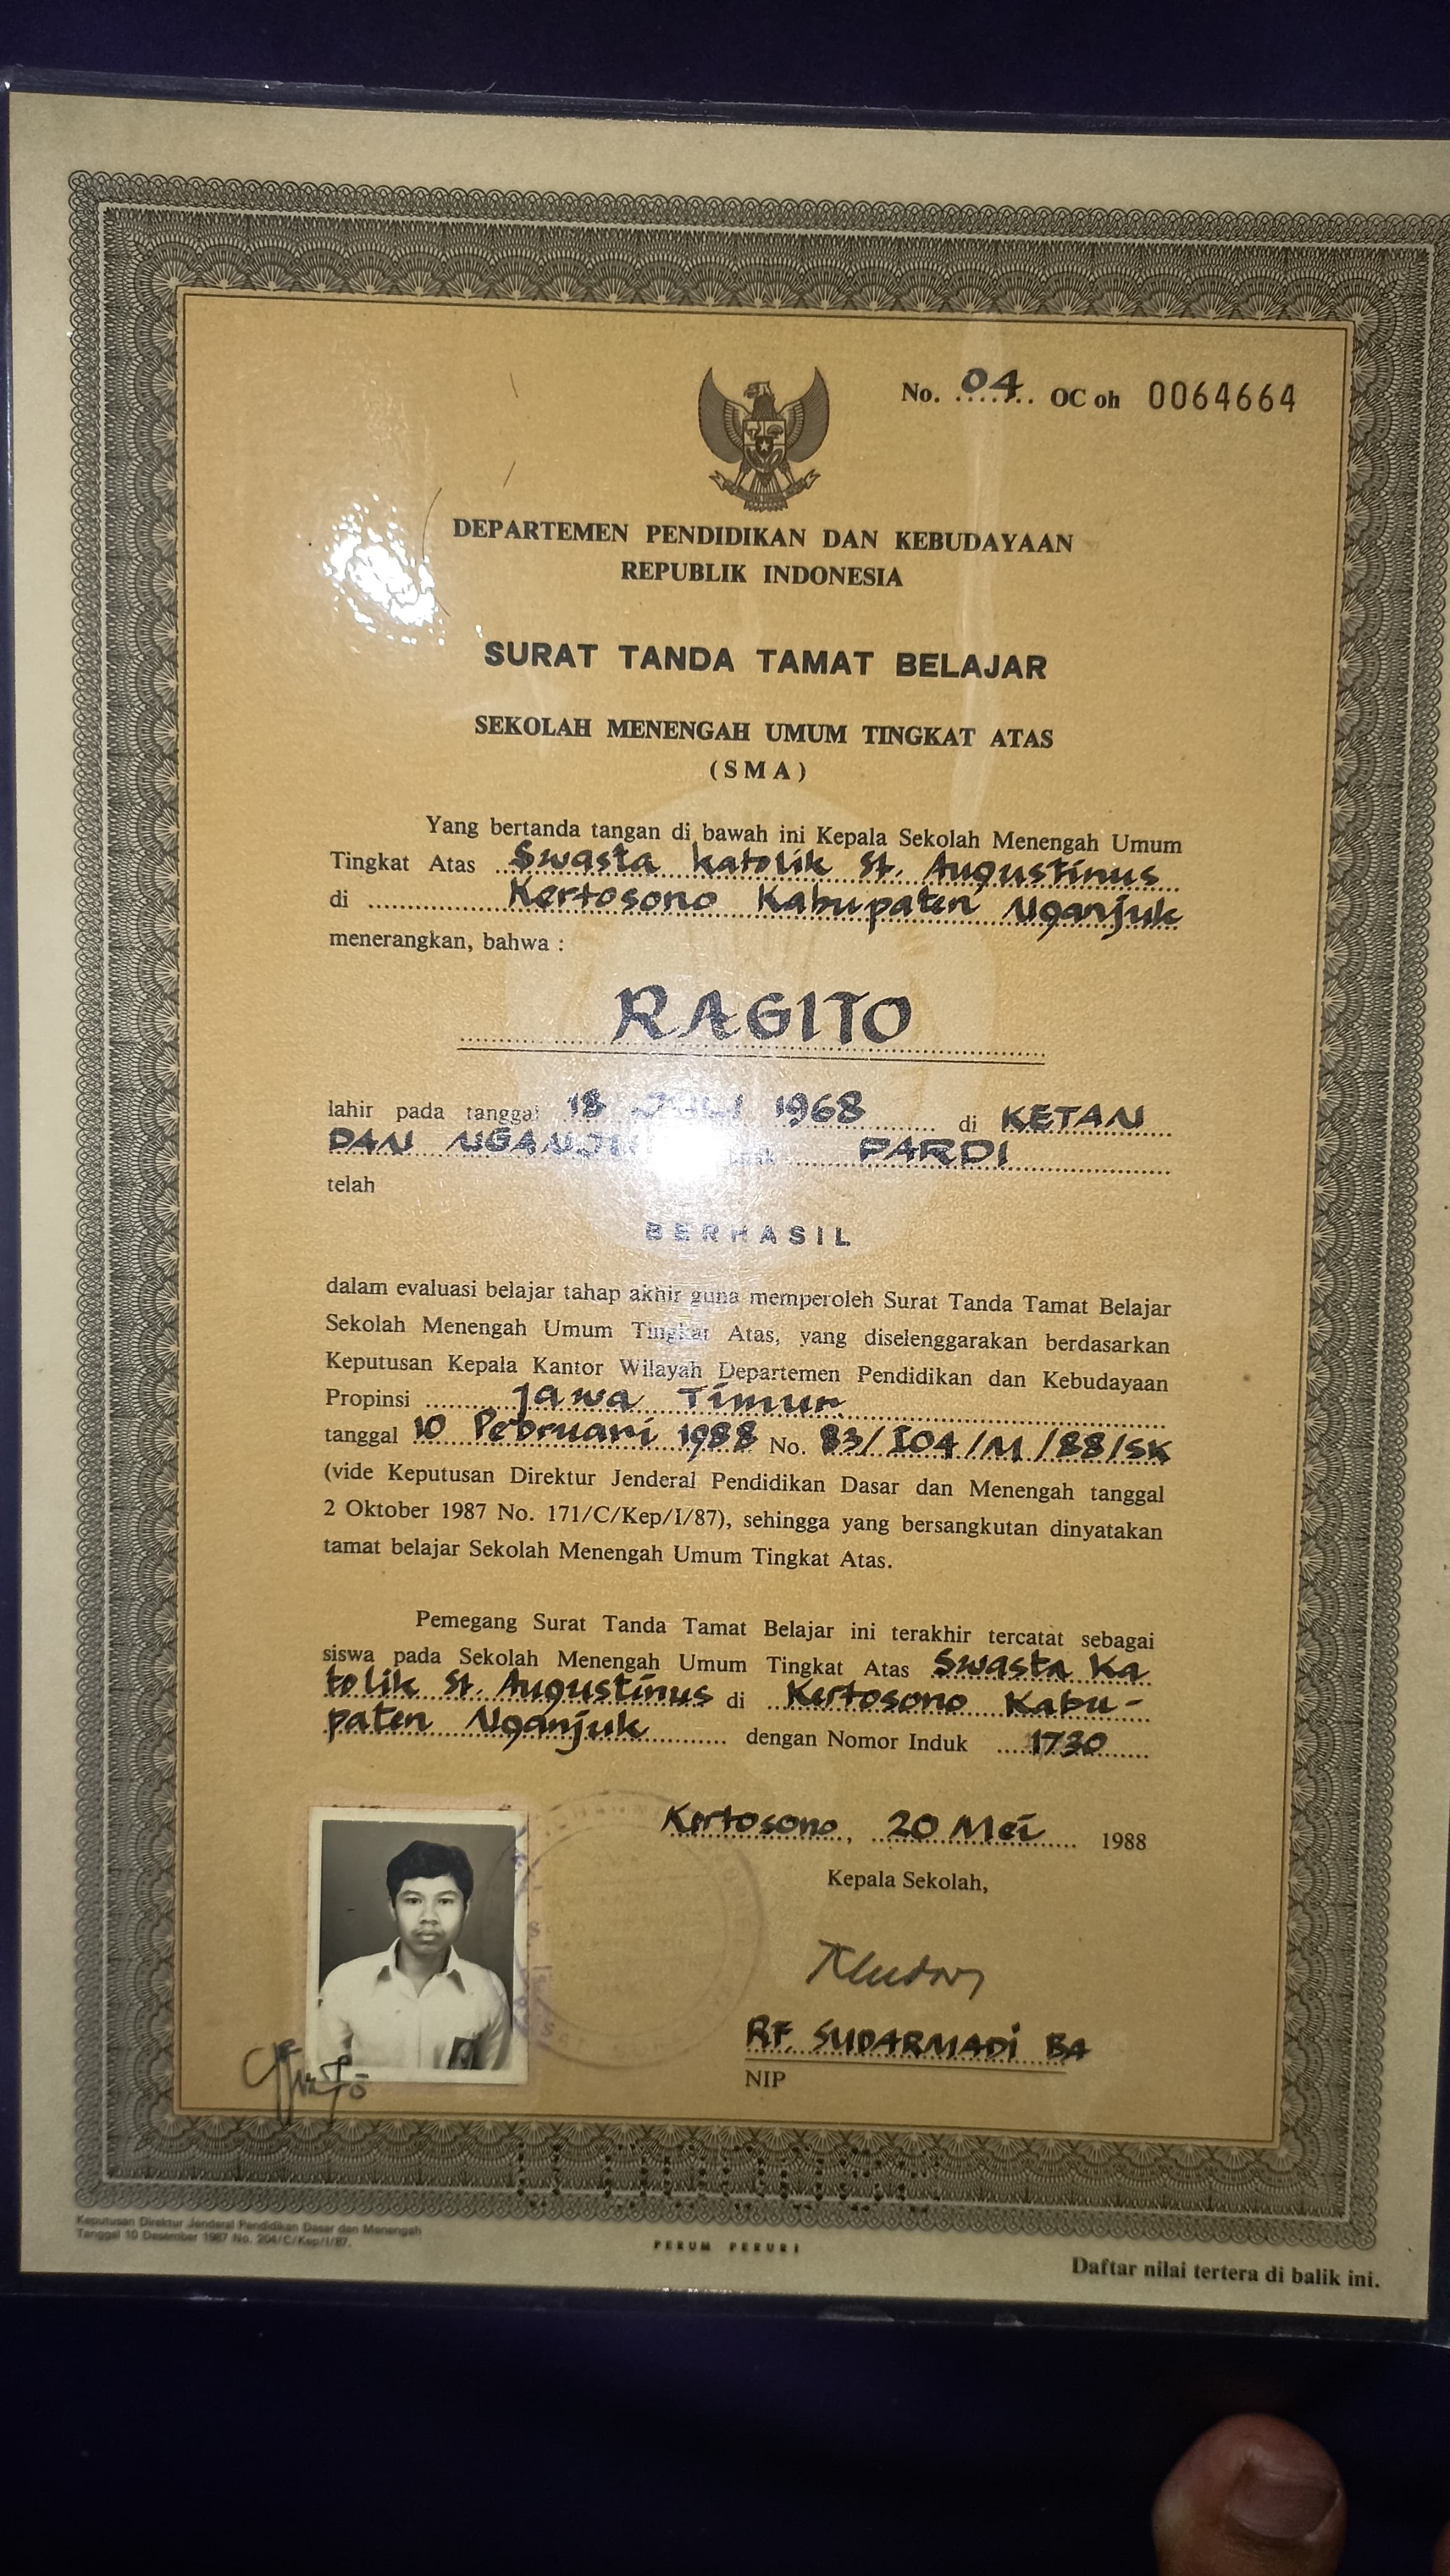 No. 04 OC oh 0064664
DEPARTEMEN PENDIDIKAN DAN KEBUDAYAAN
REPUBLIK INDONESIA
SURAT TANDA TAMAT BELAJAR
SEKOLAH MENENGAH UMUM TINGKAT ATAS
(SMA)
Yang bertanda tangan di bawah ini Kepala Sekolah Menengah Umum
Tingkat Atas Swasta katolik St. Augustinus
di Kertosono Kabupaten Nganjuk
menerangkan, bahwa :
RAGITO
lahir pada tanggal 18 JULI 1968 di KETAN
DAN PARDI
telah
BERHASIL
dalam evaluasi belajar tahap akhir guna memperoleh Surat Tanda Tamat Belajar
Sekolah Menengah Umum Tingkat Atas, yang diselenggarakan berdasarkan
Keputusan Kepala Kantor Wilayah Departemen Pendidikan dan Kebudayaan
Propinsi Jawa Timur
tanggal 10 Pebruari 1988 No. 83/I04/M/88/SK
(vide Keputusan Direktur Jenderal Pendidikan Dasar dan Menengah tanggal
2 Oktober 1987 No. 171/C/Kep/I/87), sehingga yang bersangkutan dinyatakan
tamat belajar Sekolah Menengah Umum Tingkat Atas.
Pemegang Surat Tanda Tamat Belajar ini terakhir tercatat sebagai
siswa pada Sekolah Menengah Umum Tingkat Atas Swasta Ka
tolik St. Augustinus di Kertosono Kabu-
paten Nganjuk dengan Nomor Induk 1730
Kertosono, 20 Mei 1988
Kepala Sekolah,
RF. SUDARMADI BA
NIP
Keputusan Direktur Jenderal Pendidikan Dasar dan Menengah
Tanggal 10 Desember 1987 No. 204/C/Kep/I/87.
PERUM PERURI
Daftar nilai tertera di balik ini.